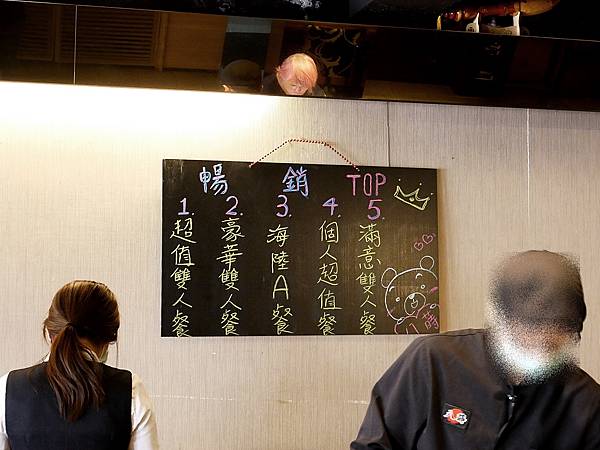 暢銷TOP
1.超值雙人餐
2.豪華雙人餐
3.海陸A餐
4.個人超值餐
5.滿意雙人餐